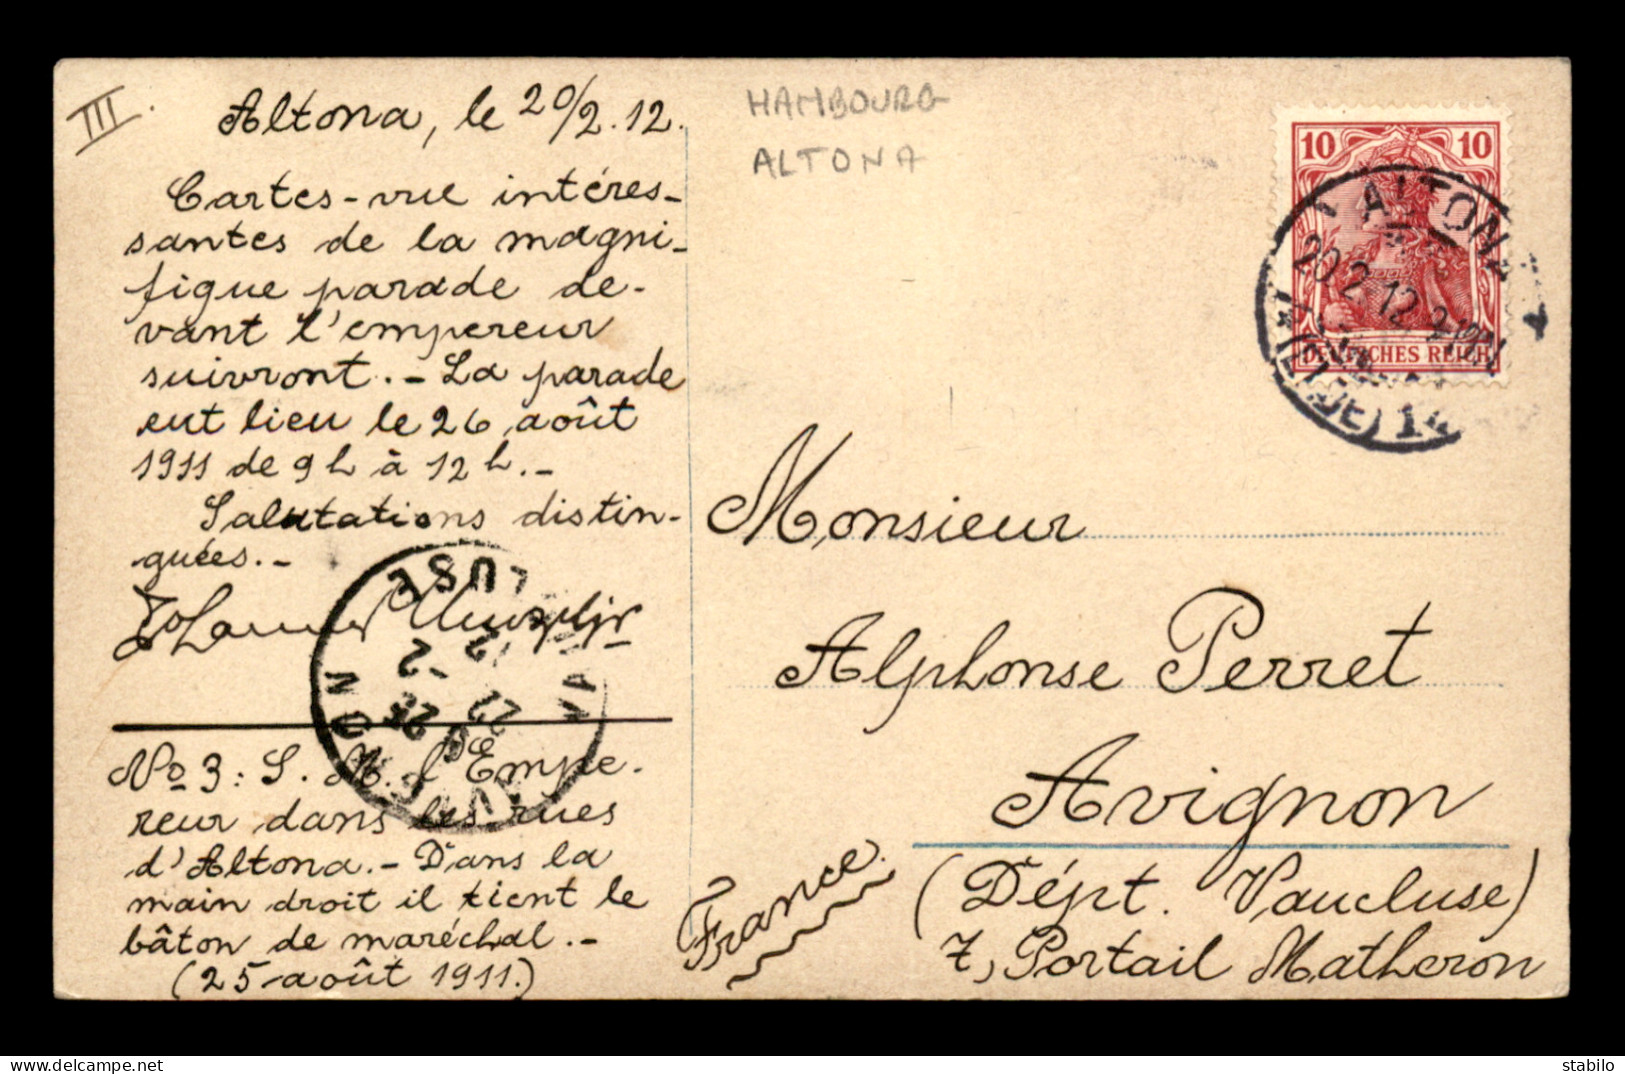 III.
Altona, le 20/2.12.
HAMBOURG
ALTONA
Cartes-vue intéres-
santes de la magni-
fique parade de-
vant l'empereur
suivront.- La parade
eut lieu le 26 août
1911 de 9 h à 12 h.-
Salutations distin-
guées.-
No 3: S. M. l'Empe-
reur dans les rues
d'Altona.- Dans la
main droit il tient le
bâton de maréchal.-
(25 août 1911.)
10 10
DEUTSCHES REICH
ALTONA
20.2.12.
(ELBE)
Monsieur
Alphonse Perret
Avignon
(Dépt. Vaucluse)
7, Portail Matheron
France.
AVIGNON
VAUCLUSE
stabilo